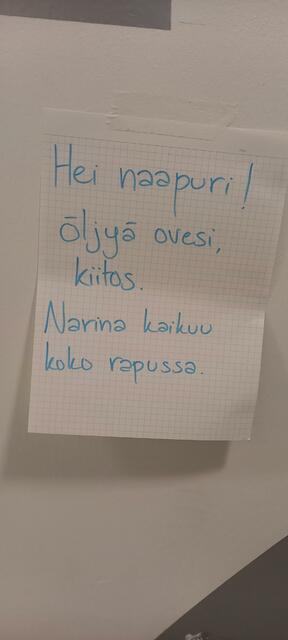 Hei naapuri!
Öljyä ovesi,
kiitos.
Narina kaikuu
koko rapussa.